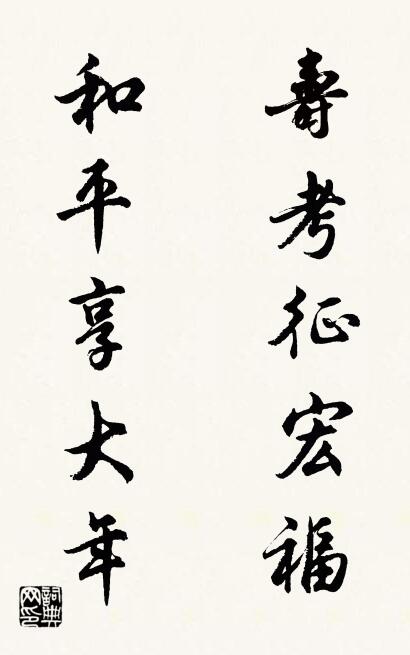 壽考征宏福
和平享大年
詞典网印